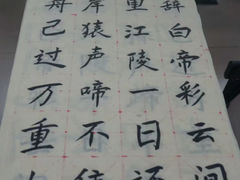 辞白帝彩云间
里江陵一日还
岸猿声啼不
舟已过万重